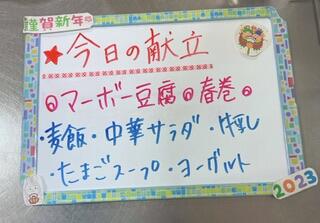 謹賀新年
★今日の献立
マーボー豆腐 春巻
・麦飯・中華サラダ・牛乳
・たまごスープ・ヨーグルト
2023